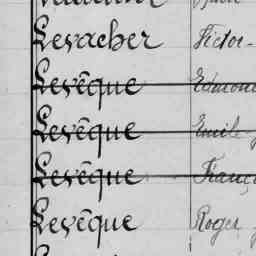 Levacher Victor-
Levêque Edmond
Levêque Emile
Levêque França
Levêque Roger